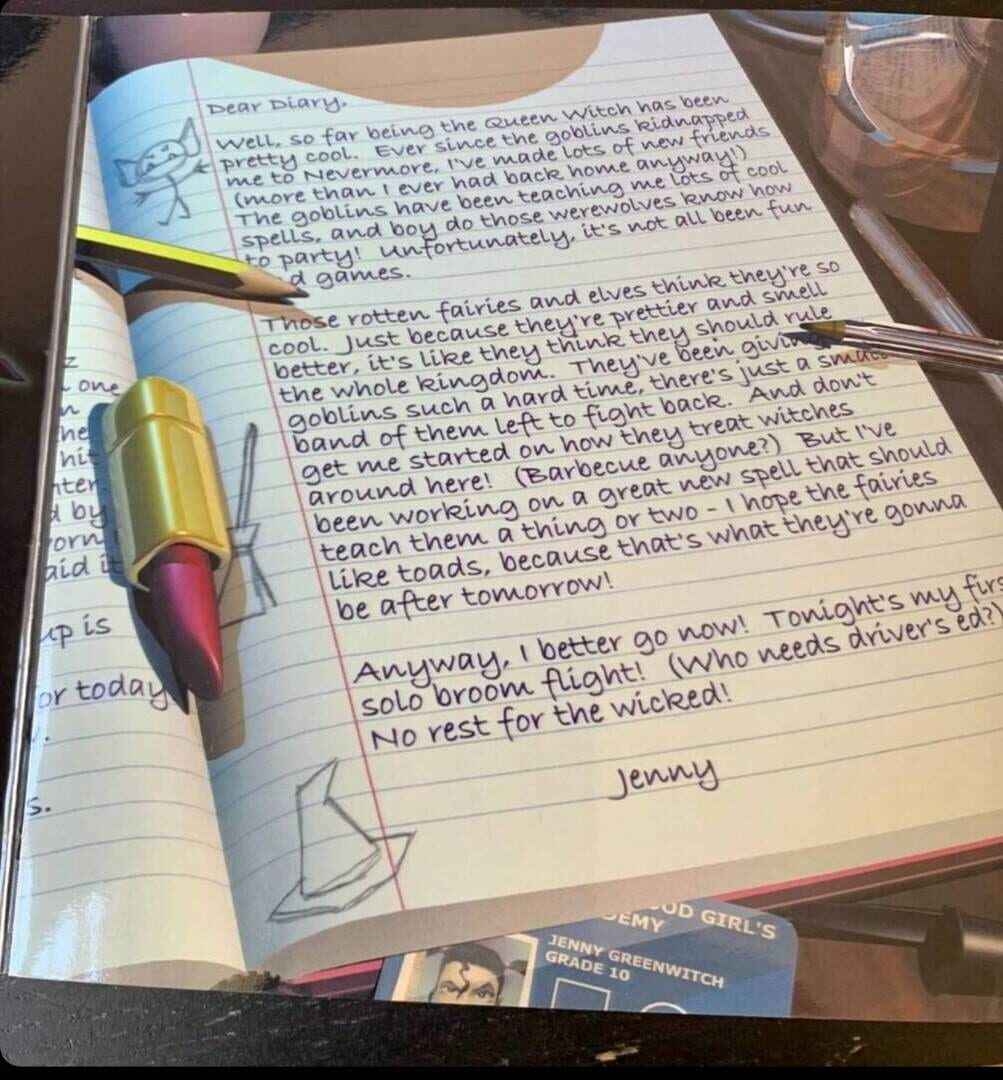 z
one
n
he
hit
nter.
d by
orn
aid it
up is
or today
s.
Dear Diary,
Well, so far being the Queen Witch has been
pretty cool. Ever since the goblins kidnapped
me to Nevermore, I've made lots of new friends
(more than I ever had back home anyway!)
The goblins have been teaching me lots of cool
spells, and boy do those werewolves know how
to party! Unfortunately, it's not all been fun
d games.
Those rotten fairies and elves think they're so
cool. Just because they're prettier and smell
better, it's like they think they should rule
the whole kingdom. They've been giving
goblins such a hard time, there's just a small
band of them left to fight back. And don't
get me started on how they treat witches
around here! (Barbecue anyone?) But I've
been working on a great new spell that should
teach them a thing or two - I hope the fairies
like toads, because that's what they're gonna
be after tomorrow!
Anyway, I better go now! Tonight's my firs
solo broom flight! (Who needs driver's ed?)
No rest for the wicked!
Jenny
OD GIRL'S
DEMY
JENNY GREENWITCH
GRADE 10